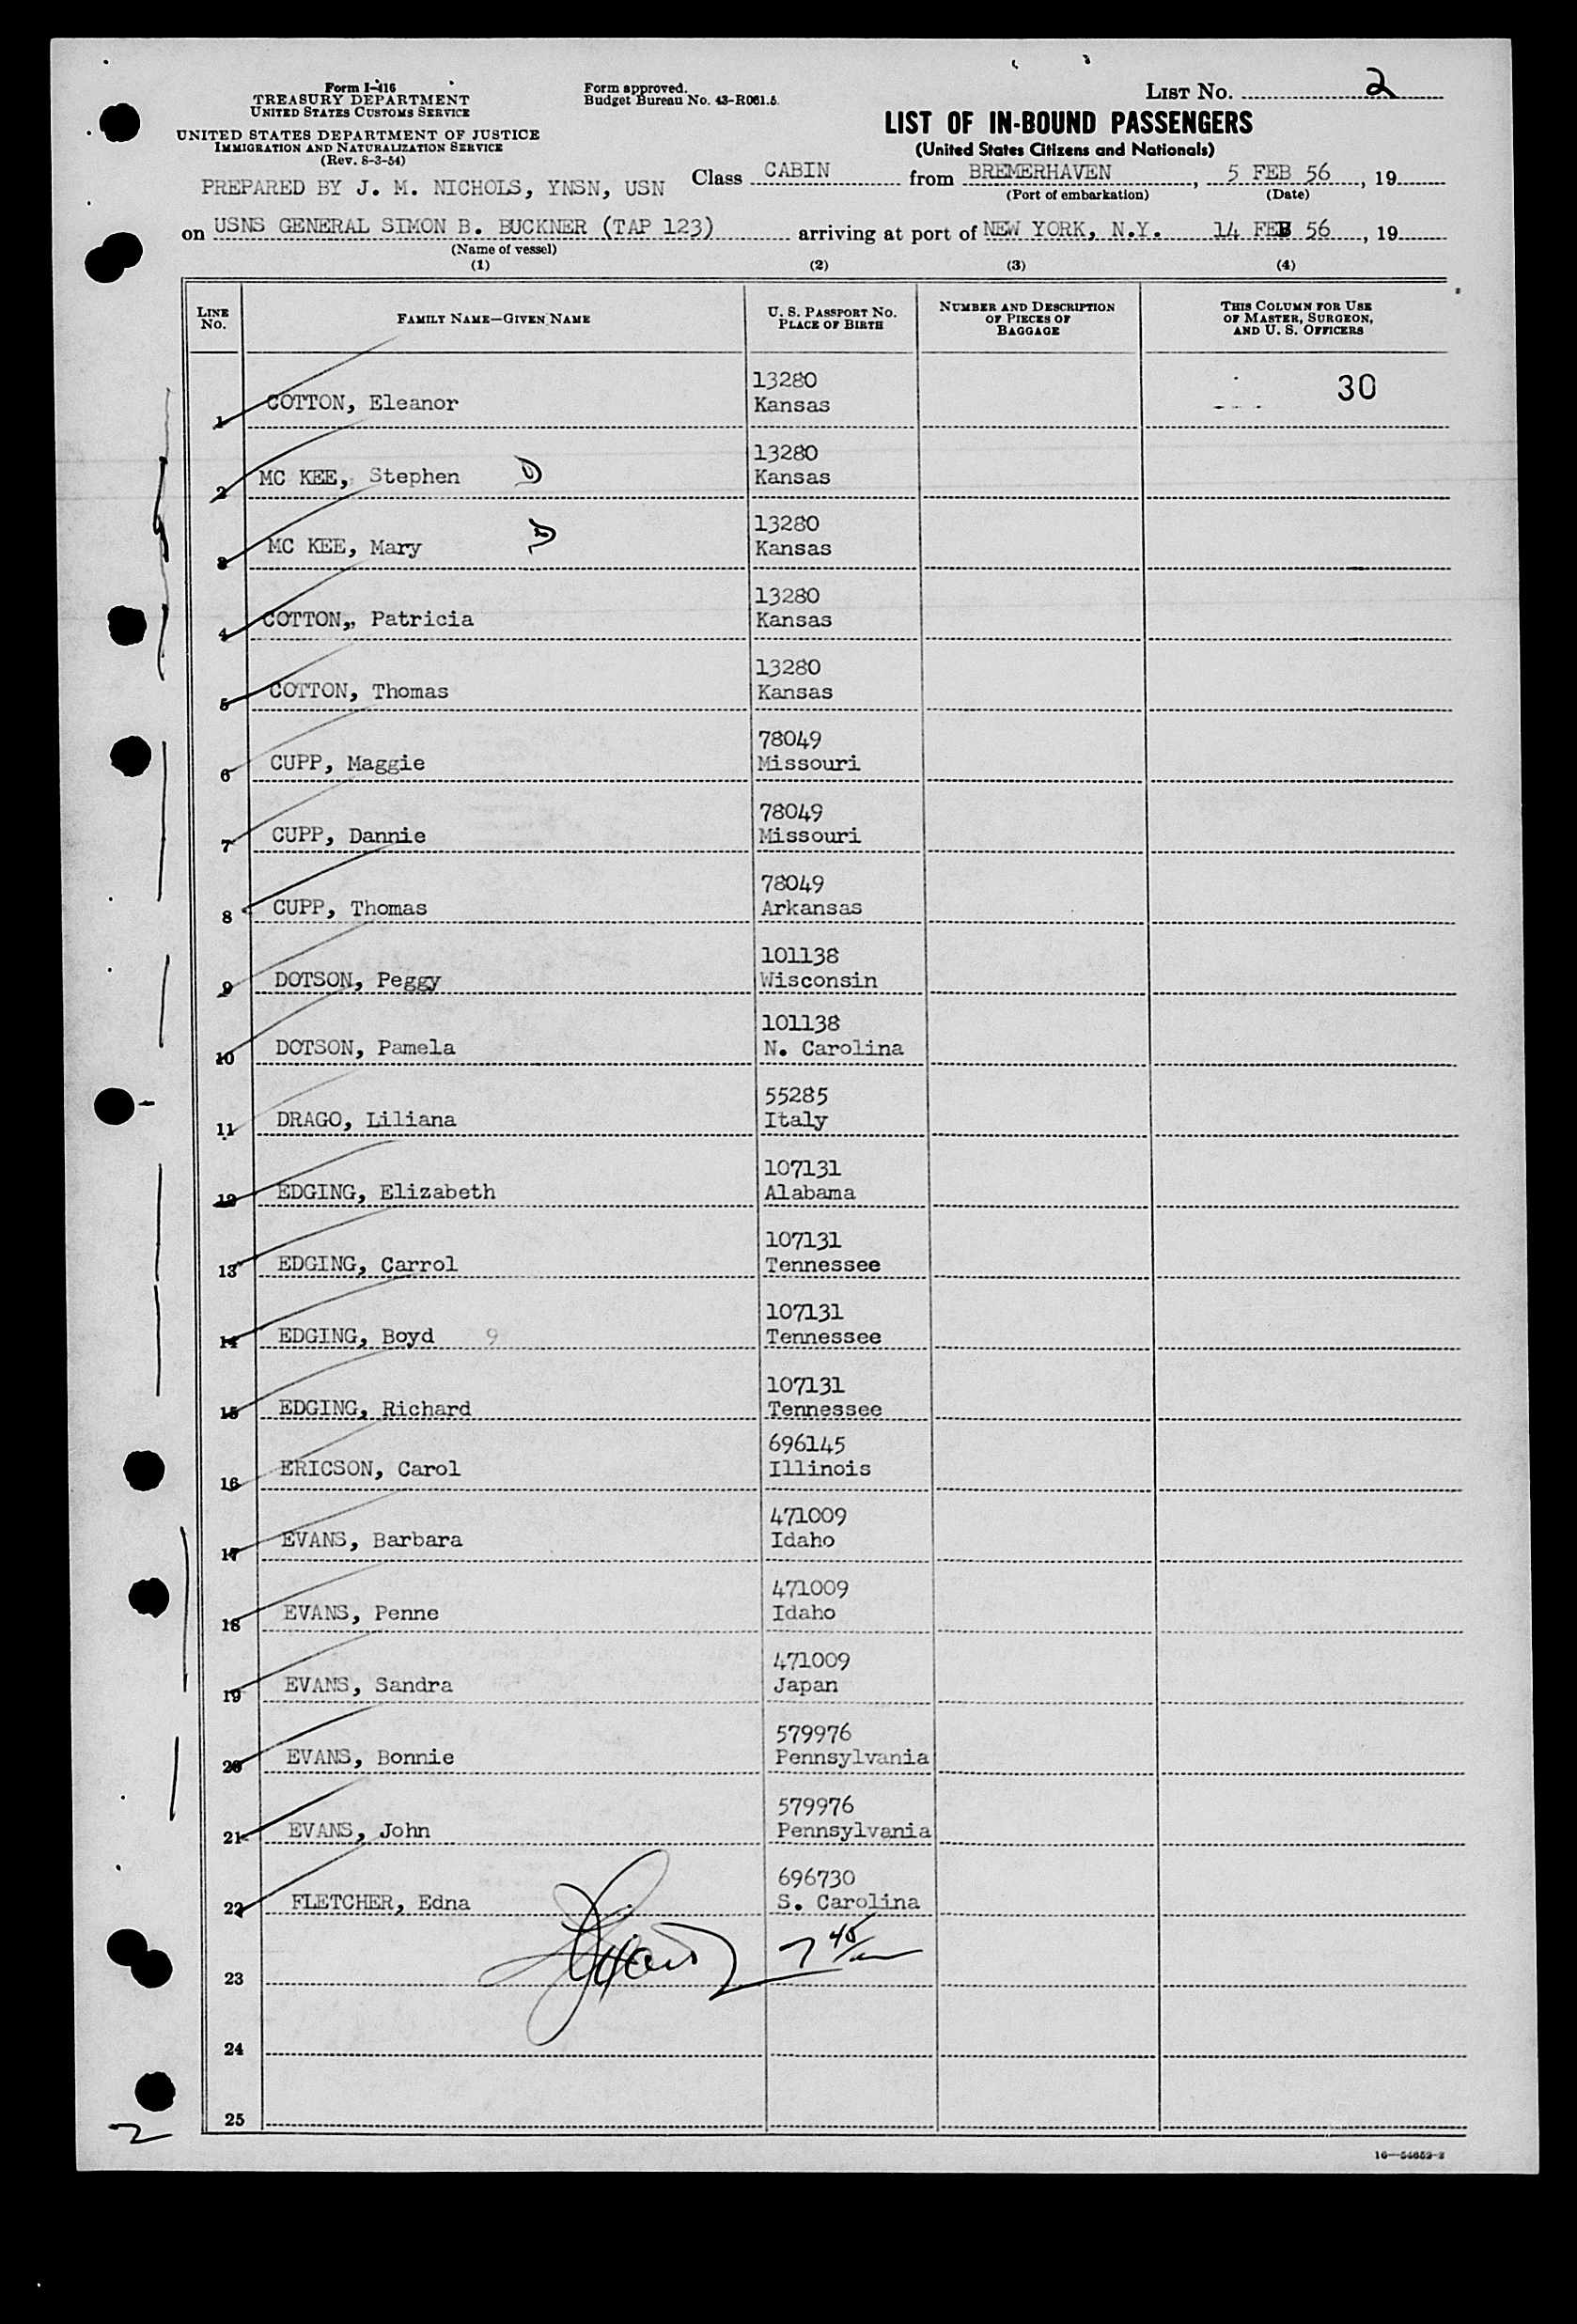 Form I-416
TREASURY DEPARTMENT
UNITED STATES CUSTOMS SERVICE
UNITED STATES DEPARTMENT OF JUSTICE
IMMIGRATION AND NATURALIZATION SERVICE
(Rev. 8-3-54)
Form approved.
Budget Bureau No. 43-R061.5.
LIST NO. 2
LIST OF IN-BOUND PASSENGERS
(United States Citizens and Nationals)
PREPARED BY J. M. NICHOLS, YNSN, USN
Class CABIN from BREMERHAVEN, 5 FEB 56, 19
(Port of embarkation) (Date)
on USNS GENERAL SIMON B. BUCKNER (TAP 123) arriving at port of NEW YORK, N.Y. 14 FEB 56, 19
(Name of vessel)
(1) (2) (3) (4)
LINE NO. FAMILY NAME—GIVEN NAME U. S. PASSPORT NO. PLACE OF BIRTH NUMBER AND DESCRIPTION OF PIECES OF BAGGAGE THIS COLUMN FOR USE OF MASTER, SURGEON, AND U. S. OFFICERS
13280 30
1 COTTON, Eleanor Kansas
13280
2 MC KEE, Stephen Kansas
13280
3 MC KEE, Mary Kansas
13280
4 COTTON,, Patricia Kansas
13280
5 COTTON, Thomas Kansas
78049
6 CUPP, Maggie Missouri
78049
7 CUPP, Dannie Missouri
78049
8 CUPP, Thomas Arkansas
101138
9 DOTSON, Peggy Wisconsin
101138
10 DOTSON, Pamela N. Carolina
55285
11 DRAGO, Liliana Italy
107131
12 EDGING, Elizabeth Alabama
107131
13 EDGING, Carrol Tennessee
107131
14 EDGING, Boyd 9 Tennessee
107131
15 EDGING, Richard Tennessee
696145
16 ERICSON, Carol Illinois
471009
17 EVANS, Barbara Idaho
471009
18 EVANS, Penne Idaho
471009
19 EVANS, Sandra Japan
579976
20 EVANS, Bonnie Pennsylvania
579976
21 EVANS, John Pennsylvania
696730
22 FLETCHER, Edna S. Carolina
23
24
25
2
16—54652-2